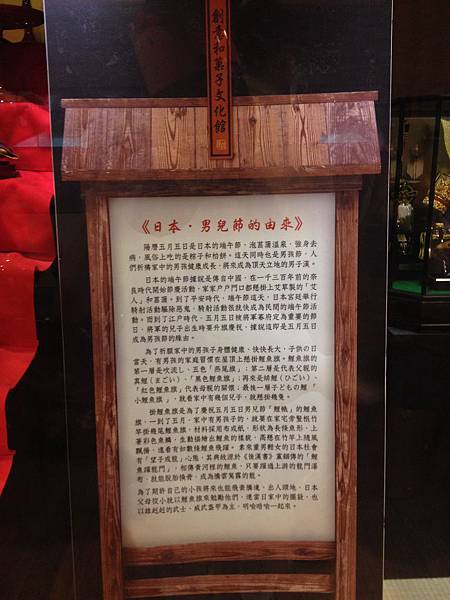 創意和菓子文化館
《日本‧男兒節的由來》
陽曆五月五日是日本的端午節，泡菖蒲溫泉，強身去
病，風俗上吃的是粽子和柏餅。這天同時也是男孩節，人
們祈禱家中的男孩健康成長，將來成為頂天立地的男子漢。
日本的端午節據說是傳自中國，在一千三百年前的奈
良時代開始節慶活動，家家戶戶門口都懸掛上艾草製的「艾
人」和菖蒲。到了平安時代，端午節這天，日本宮廷舉行
騎射活動驅除惡鬼，騎射活動很就快成為民間的端午節活
動。而到了江戶時代，五月五日被將軍幕府定為重要的節
日，將軍的兒子出生時要升旗慶祝，據說這即是五月五日
成為男孩節的緣由。
為了祈願家中的男孩子身體健康、快快長大，子供の日
當天，有男孩的家庭習慣在屋頂上懸掛鯉魚旗。鯉魚旗的
第一層是吹流し、五色「燕尾旗」；第二層是代表父親的
真鯉（まごい）、「黑色鯉魚旗」；再來是緋鯉（ひごい）、
「紅色鯉魚旗」代表母親的關懷；最後一層子どもの鯉「
小鯉魚旗」，就看家中有幾個兒子，就懸掛幾隻。
掛鯉魚旗是為了慶祝五月五日男兒節「鯉幟」的鯉魚
旗。一到了五月，家中有男孩子的，就要在家宅旁豎根竹
竿掛幾尾鯉魚旗，材料採用布或紙，形狀為長條魚形，上
著彩色魚鱗，生動描繪出鯉魚的模貌，高懸在竹竿上隨風
飄揚，遠看有如數條鯉魚飛躍。素來重男輕女的日本社會
有「望子成龍」心態，其典故源於《後漢書》黨錮傳的「鯉
魚躍龍門」，相傳黃河裡的鯉魚，只要躍過上游的龍門瀑
布，就能脫胎換骨，成為騰雲駕霧的龍。
為了期許自己的小孩將來也能飛黃騰達、出人頭地，日本
父母從小就以鯉魚旗來勉勵他們，連當日家中的擺設，也
以雄赳赳的武士、威武盔甲為主，明喻暗喻一起來。